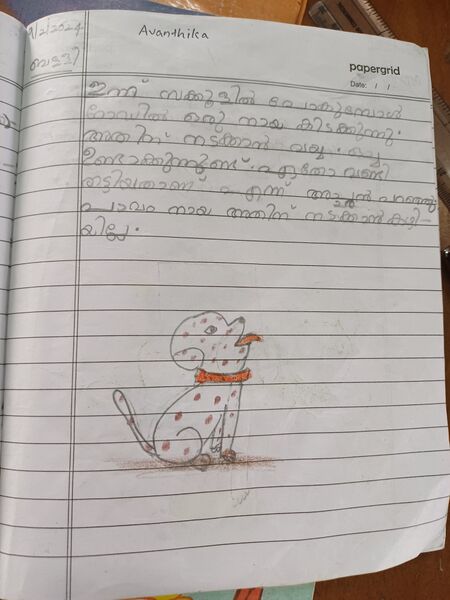 9/2/2024
Avanthika
വെള്ളി
papergrid
Date: / /
ഇന്ന് സ്കൂളിൽ പോകുമ്പോൾ
റോഡിൽ ഒരു നായ കിടക്കുന്നു.
അതിന് നടക്കാൻ വയ്യ. ഒച്ച
ഉണ്ടാക്കുന്നുണ്ട്. ഏതോ വണ്ടി
തട്ടിയതാണ് എന്ന് അച്ഛൻ പറഞ്ഞു
പാവം നായ അതിന് നടക്കാൻ കഴി-
യില്ലേ.